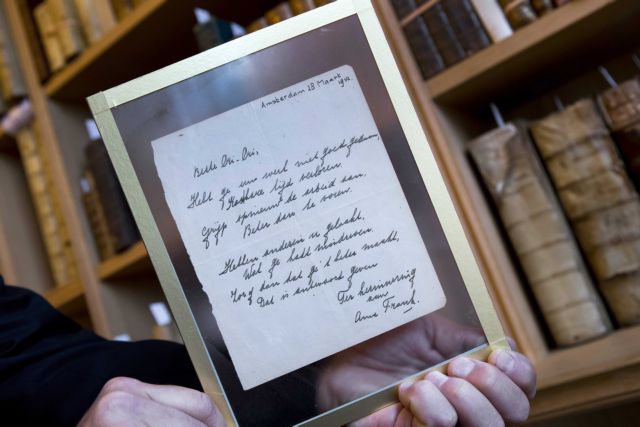 Amsterdam 28 Maart
1942.
Beste Cri-Cri,
Hebt ge uw werk niet goed gedaan,
kostbare tijd verloren,
Grijp opnieuw de arbeid aan,
Beter dan te voren.
Hebben anderen u gelaakt,
Wat ge hebt misdreven,
Zorg dan dat ge 't beter maakt,
Dat is antwoord geven
Ter herinnering
aan
Anne Frank.